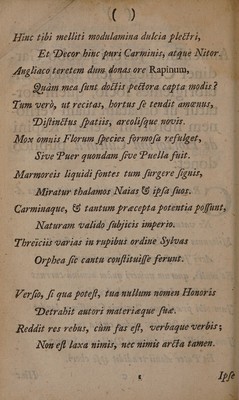 ( )
Hinc tibi melliti modulamina dulcia plectri,
Et Decor hinc puri Carminis, atque Nitor.
Angliaco teretem dum donas ore Rapinum,
Quàm mea sunt doctis pectora capta modis?
Tum verò, ut recitas, hortus se tendit amœnus,
Distinctus spatiis, areolisque novis.
Mox omnis Florum species formosa refulget,
Sive Puer quondam sive Puella fuit.
Marmoreis liquidi fontes tum surgere signis,
Miratur thalamos Naias & ipsa suos.
Carminaque, & tantum præcepta potentia possunt,
Naturam valido subjicis imperio.
Threïciis varias in rupibus ordine Sylvas
Orphea sic cantu constituisse ferunt.
Versio, si qua potest, tua nullum nomen Honoris
Detrahit autori materiæque suæ.
Reddit res rebus, cùm fas est, verbaque verbis;
Non est laxa nimis, nec nimis arcta tamen.
Ipse